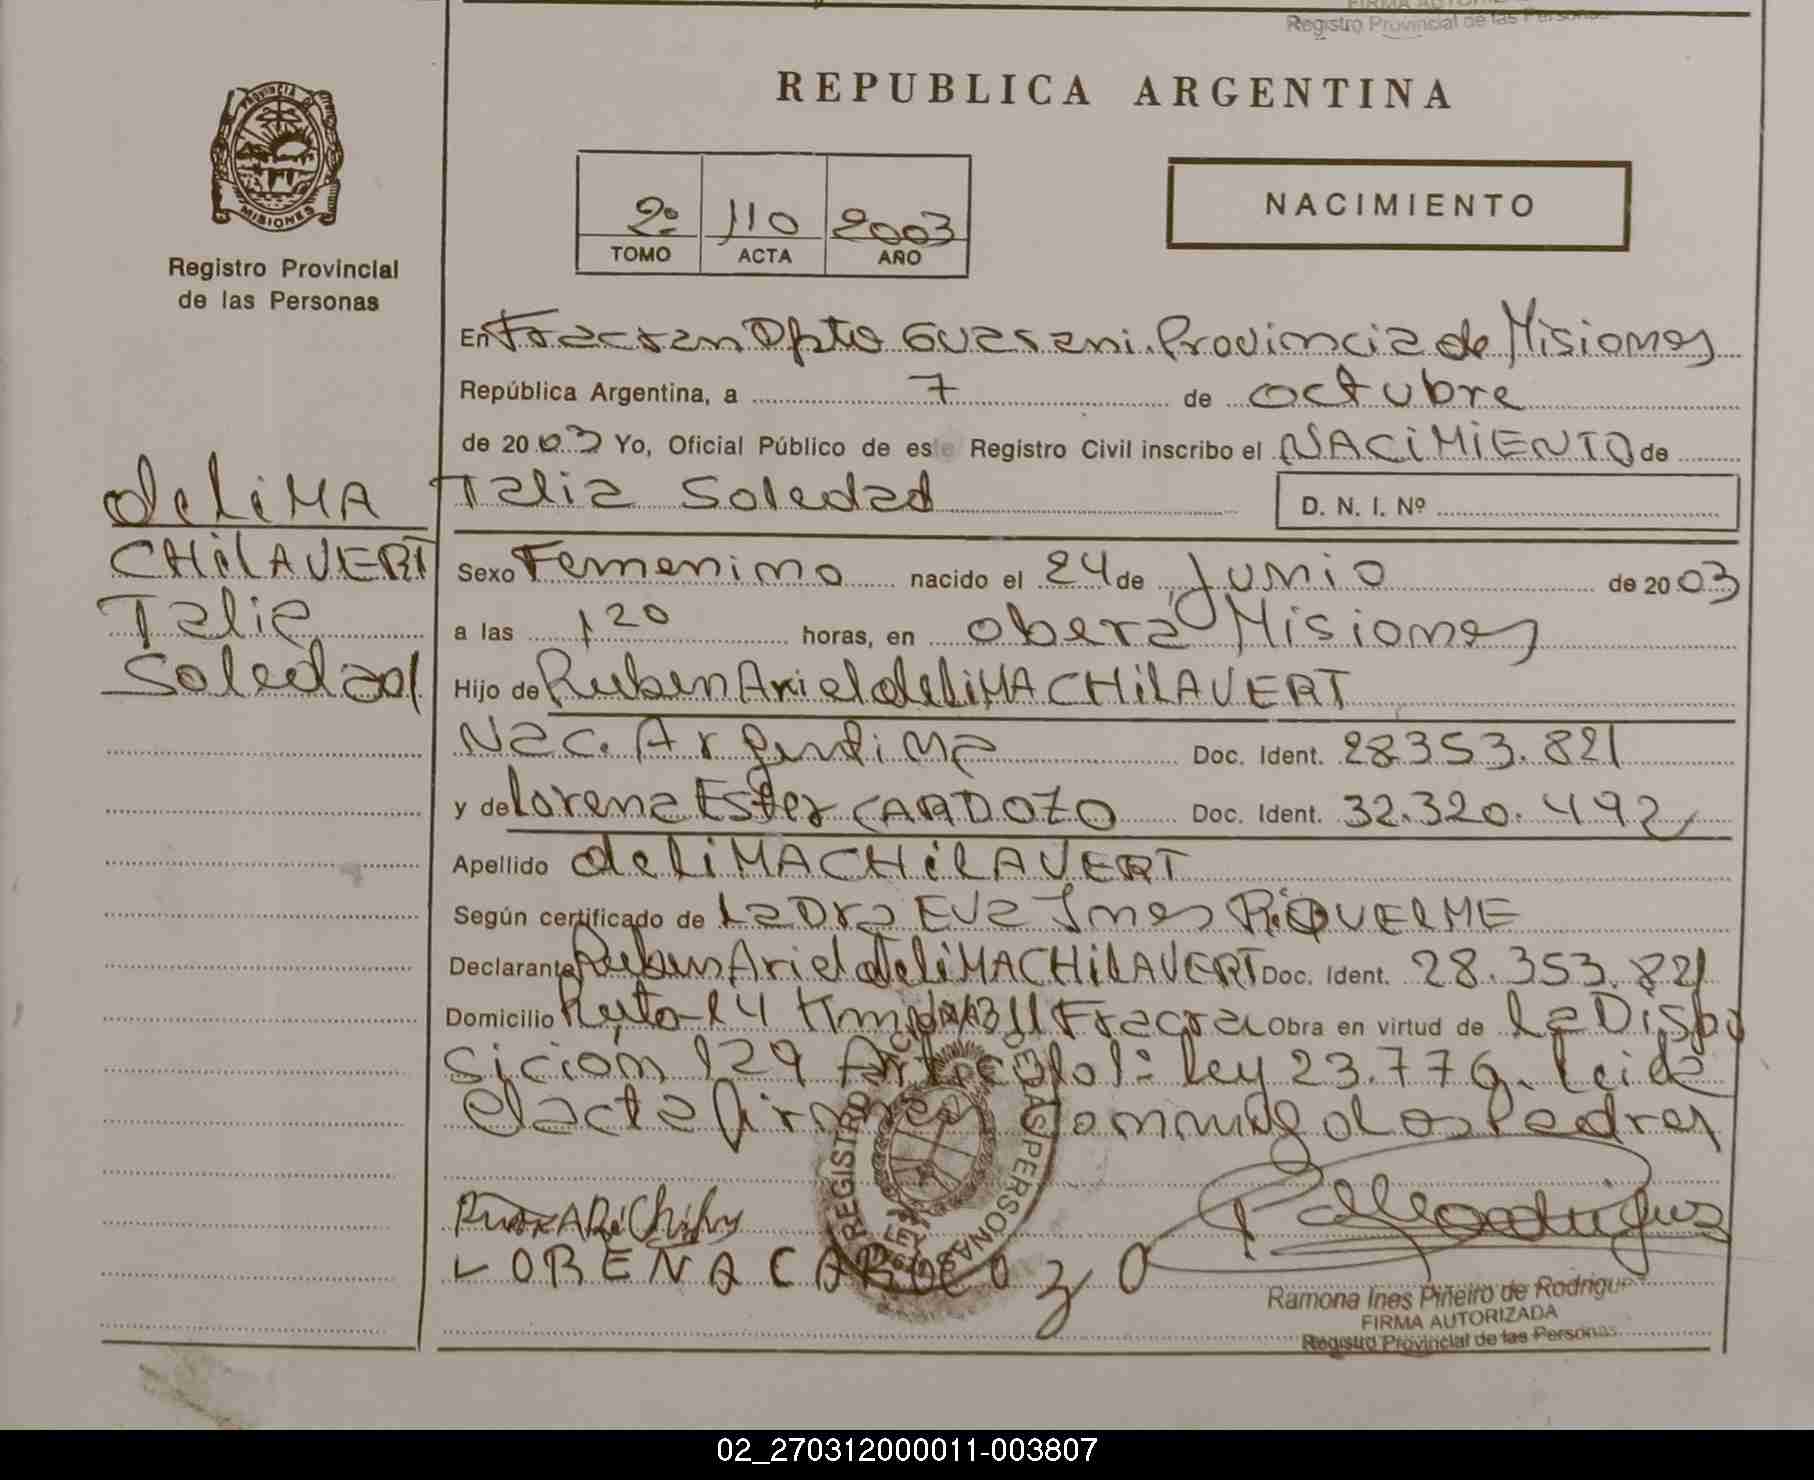 Registro Provincial de las Personas
REPUBLICA ARGENTINA
PROVINCIA DE
MISIONES
Registro Provincial
de las Personas
2º 110 2003
TOMO ACTA AÑO
NACIMIENTO
En Fracran Dpto Guarani. Provincia de Misiones
República Argentina, a 7 de octubre
de 2003 Yo, Oficial Público de este Registro Civil inscribo el NACIMIENTO de
Talia Soledad
D. N. I. Nº
de LIMA
CHILAVERT
Talia
Soledad
Sexo Femenino nacido el 24 de Junio de 2003
a las 1 20 horas, en obera Misiones
Hijo de Ruben Ariel de LIMA CHILAVERT
Nac. Argentina Doc. Ident. 28.353.821
y de Lorena Ester CARDOZO Doc. Ident. 32.320.492
Apellido de LIMA CHILAVERT
Según certificado de La Dra Eva Ines RIQUELME
Declarante Ruben Ariel de LIMA CHILAVERT Doc. Ident. 28.353.821
Domicilio Ruta 14 Km 1311 Fracran Obra en virtud de La Dispo
sicion 129 Articulo 1º Ley 23.776. Leida
el acta firman conmigo Los Padres
REGISTRO DE LAS PERSONAS
LEY
LORENA CARDOZO
Ramona Ines Piñeiro de Rodrigue
FIRMA AUTORIZADA
Registro Provincial de las Personas
02_270312000011-003807